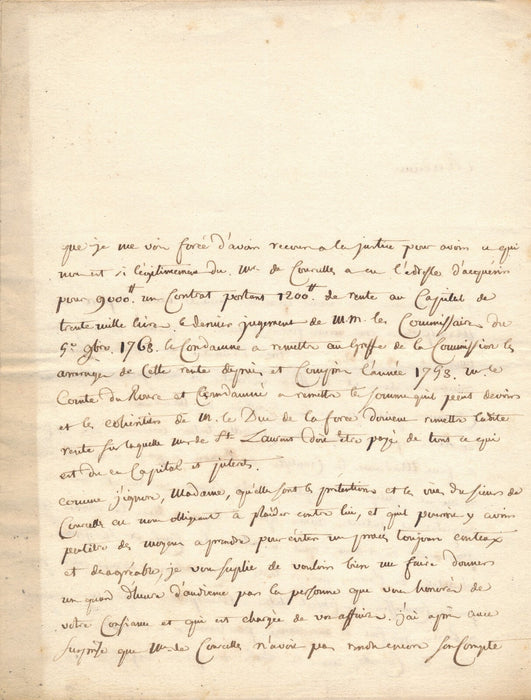 que je me voir forcé d'avoir recour a la justice pour avoir ce qui
nou est si légitimement du. Mr. de Courcelles a eu l'adresse d'acquérir
pour 9000.tt un Contrat portant 1200.tt de rente au Capital de
trente mille livre. le dernier jugement de M.M. les Commissaires du
5e. 9bre. 1763. le Condamne a remettre au Greffe de la Commission les
arrerages de Cette rente depuis et Compris l'année 1753. M. le
Comte du Roure est Condamné a remettre les sommes qu'il peut devoir
et les héritiers de M. le Duc de la force doivent remettre ladite
rente sur laquelle Mr. de St. Laurent doit être payé de tout ce qui
est du en Capital et interets.
comme j'ignore, Madame, qu'elles sont les prétentions et les vues du sieur de
Courcelles en nous obligeant a plaider contre lui, et qu'il pouroit y avoir
peutêtre des moyens a prendre pour éviter un procès toujour couteux
et désagréable, je vou suplie de vouloir bien me faire donner
un quard d'heure d'audience par la personne que vou honorés de
votre Confiance et qui est chargée de vos affaires. j'ai apris avec
surprise que Mr. de Courcelles n'avoit pas rendu encore son Compte